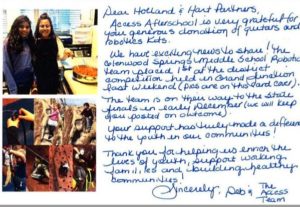 Dear Holland & Hart Partners,
Access Afterschool is very grateful for
your generous donation of guitars and
robotics kits.
We have exciting news to share! The
Cottonwood Springs Middle School Robotics
team placed 1st at the district
competition held in Grand Junction
last weekend (pics are on this card cover).
The team is on their way to the State
finals in early December (we will keep
you posted on outcome).
Your support has truly made a difference
to the youth in our communities!
Thank you for helping us enrich the
lives of youth, support working
families and building healthy
communities!
Sincerely, Deb & The
Access
Team